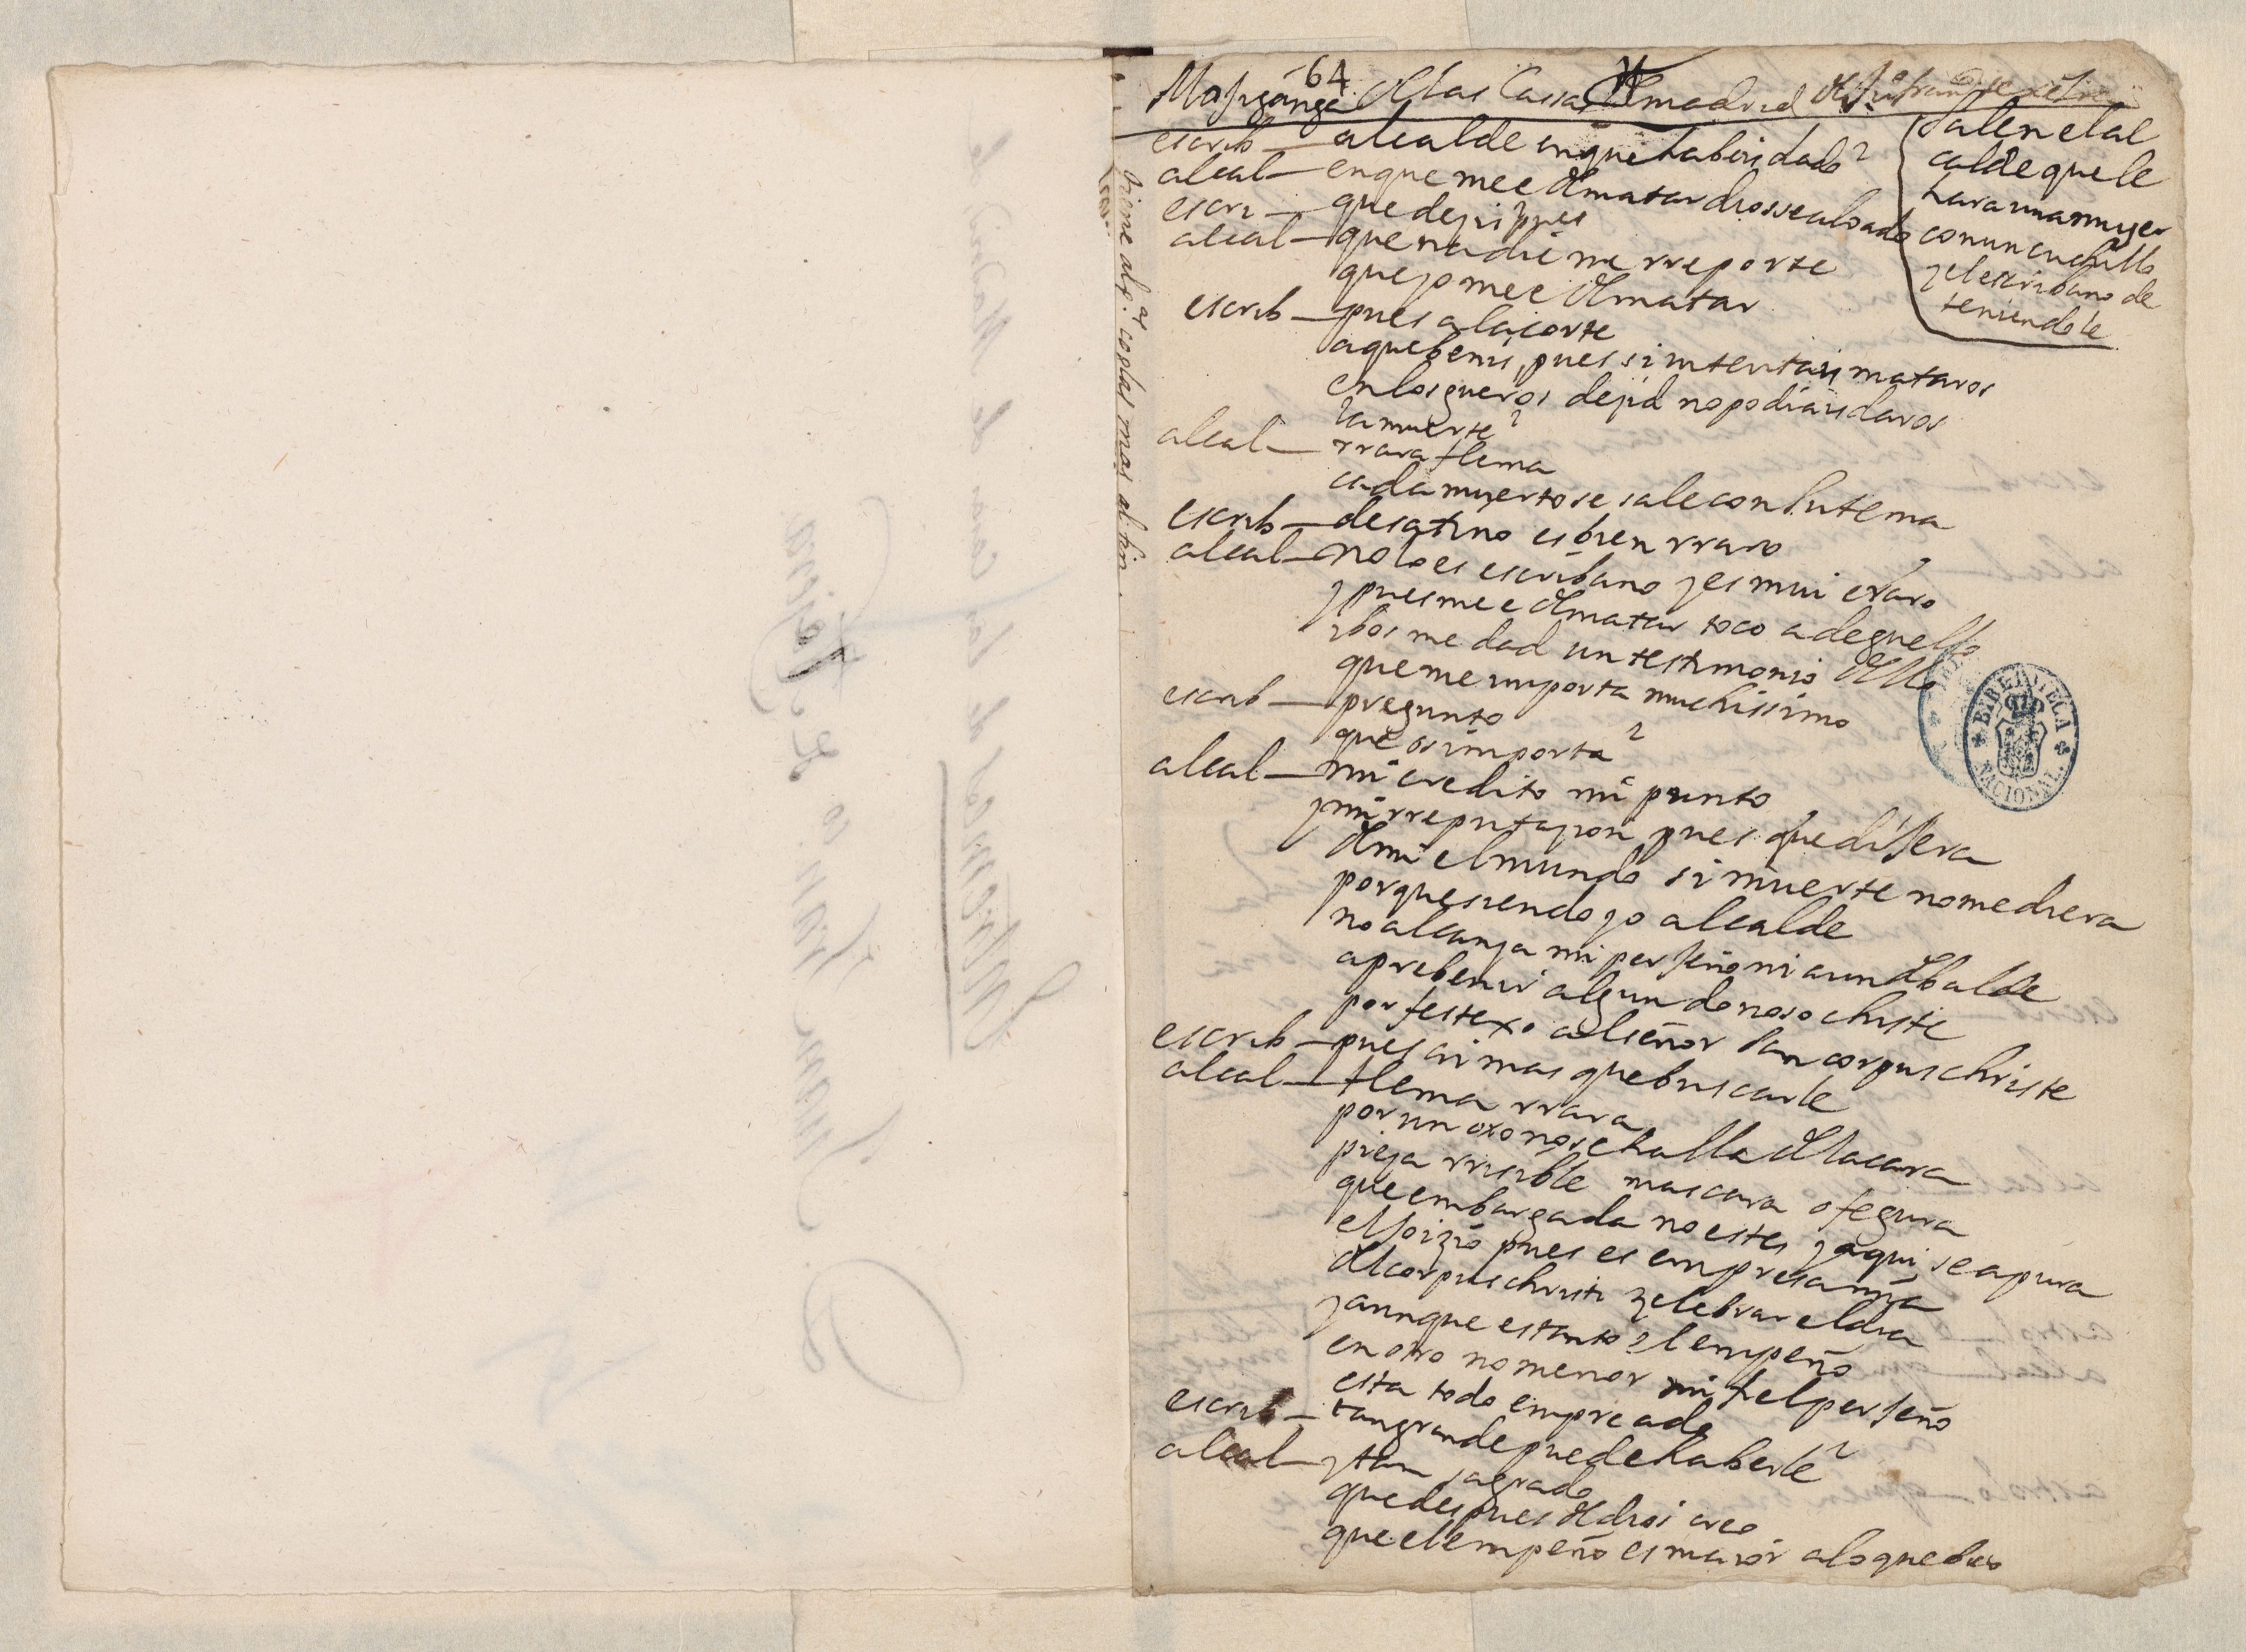 64
Mojiganga de las Cassas de madrid
salen el al
calde que le
hara una muger
con un cuchillo
y el escribano de
teniendole
escrib — alcalde en que habeis dado?
alcal — en que me e de matar dios sea loado
escri — que dezis pues
alcal — que nadie me rreporte
que yo me e de matar
escrib — pues a la corte
a que benis, pues si intentais mataros
en los gueros dezid no podiais daros
la muerte?
alcal — rrara flema
cada muerto se sale con su tema
escrib — desatino es bien rraro
alcal — no lo es escribano y es mui claro
y pues me e de matar toco a deguello
y bos me dad un testimonio dello
que me importa muchissimo
escrib — pregunto
que os importa?
alcal — mi credito mi punto
y mi rreputazion pues que dijera
de mi el mundo si muerte no me diera
porque siendo yo alcalde
no alcanza mi perjeño ni aun de balde
a prebenir algun donoso chiste
por festexo al señor san corpus christe
escrib — pues ai mas que buscarle
alcal — flema rrara
por un oxo no se halla de la cara
pieza rrisible mascara o figura
que embargada no este y aqui se apura
el juizio pues es empresa mia
del corpus christi zelebrar el dia
y aunque es tanto el empeño
en otro no menor mi fiel perjeño
esta todo empreado
escrib — tan grande puede haberle?
alcal — y tan sagrado
que despues de dios creo
que el empeño es maior a lo que beo
viene alg.as coplas mas al fin.
BIBLIOTECA NACIONAL